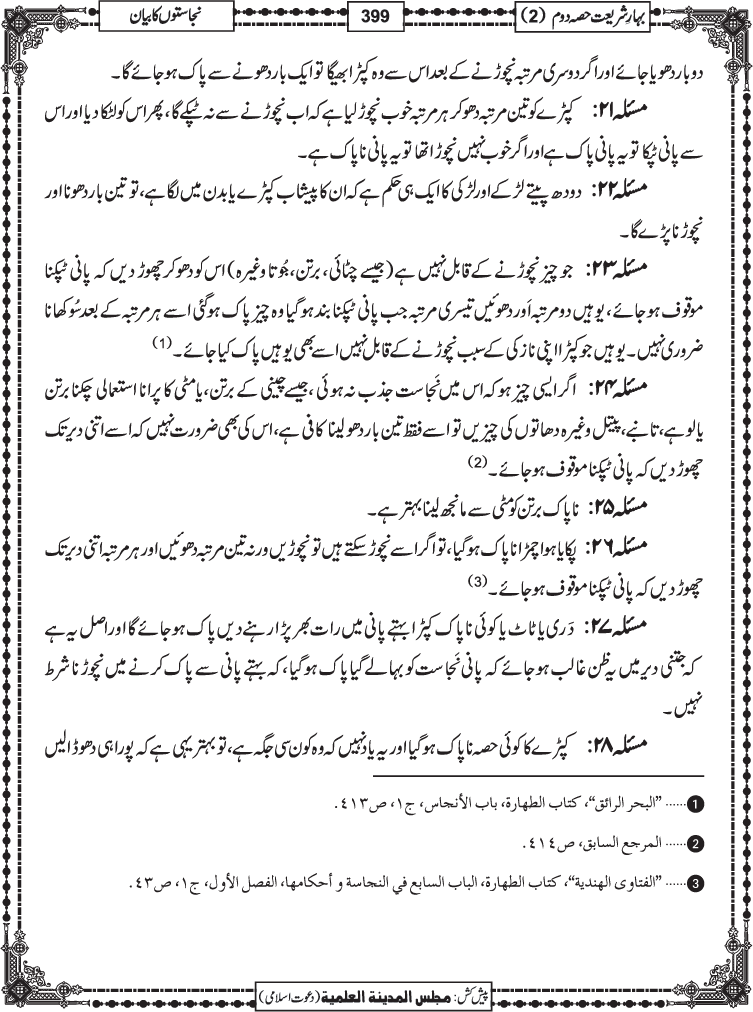 بہارِ شریعت حصہ دوم (2)
399
نجاستوں کا بیان
دو بار دھویا جائے اور اگر دوسری مرتبہ نچوڑنے کے بعد اس سے وہ کپڑا بھیگا تو ایک بار دھونے سے پاک ہو جائے گا۔
مسئلہ ۲۱: کپڑے کو تین مرتبہ دھو کر ہر مرتبہ خوب نچوڑ لیا ہے کہ اب نچوڑنے سے نہ ٹپکے گا، پھر اس کو لٹکا دیا اور اس
سے پانی ٹپکا تو یہ پانی پاک ہے اور اگر خوب نہیں نچوڑا تھا تو یہ پانی ناپاک ہے۔
مسئلہ ۲۲: دودھ پیتے لڑکے اور لڑکی کا ایک ہی حکم ہے کہ ان کا پیشاب کپڑے یا بدن میں لگا ہے، تو تین بار دھونا اور
نچوڑنا پڑے گا۔
مسئلہ ۲۳: جو چیز نچوڑنے کے قابل نہیں ہے (جیسے چٹائی، برتن، جُوتا وغیرہ) اس کو دھو کر چھوڑ دیں کہ پانی ٹپکنا
موقوف ہو جائے، یوہیں دو مرتبہ اَور دھوئیں تیسری مرتبہ جب پانی ٹپکنا بند ہو گیا وہ چیز پاک ہو گئی اسے ہر مرتبہ کے بعد سُوکھانا
ضروری نہیں۔ یوہیں جو کپڑا اپنی نازکی کے سبب نچوڑنے کے قابل نہیں اسے بھی یوہیں پاک کیا جائے۔ (1)
مسئلہ ۲۴: اگر ایسی چیز ہو کہ اس میں نَجاست جذب نہ ہوئی، جیسے چینی کے برتن، یا مٹی کا پرانا استعمالی چکنا برتن
یا لوہے، تانبے، پیتل وغیرہ دھاتوں کی چیزیں تو اسے فقط تین بار دھو لینا کافی ہے، اس کی بھی ضرورت نہیں کہ اسے اتنی دیر تک
چھوڑ دیں کہ پانی ٹپکنا موقوف ہو جائے۔ (2)
مسئلہ ۲۵: ناپاک برتن کو مٹی سے مانجھ لینا بہتر ہے۔
مسئلہ ۲۶: پکایا ہوا چمڑا ناپاک ہو گیا، تو اگر اسے نچوڑ سکتے ہیں تو نچوڑیں ورنہ تین مرتبہ دھوئیں اور ہر مرتبہ اتنی دیر تک
چھوڑ دیں کہ پانی ٹپکنا موقوف ہو جائے۔ (3)
مسئلہ ۲۷: دَری یا ٹاٹ یا کوئی ناپاک کپڑا بہتے پانی میں رات بھر پڑا رہنے دیں پاک ہو جائے گا اور اصل یہ ہے
کہ جتنی دیر میں یہ ظن غالب ہو جائے کہ پانی نَجاست کو بہا لے گیا پاک ہو گیا، کہ بہتے پانی سے پاک کرنے میں نچوڑنا شرط
نہیں۔
مسئلہ ۲۸: کپڑے کا کوئی حصہ ناپاک ہو گیا اور یہ یاد نہیں کہ وہ کون سی جگہ ہے، تو بہتر یہی ہے کہ پورا ہی دھو ڈالیں
1 ...... ”البحر الرائق“، كتاب الطهارة، باب الأنجاس، ج١، ص٤١٣.
2 ...... المرجع السابق، ص٤١٤.
3 ...... ”الفتاوى الهندية“، كتاب الطهارة، الباب السابع في النجاسة و أحكامها، الفصل الأول، ج١، ص٤٣.
پیش کش: مجلس المدينة العلمية (دعوت اسلامی)